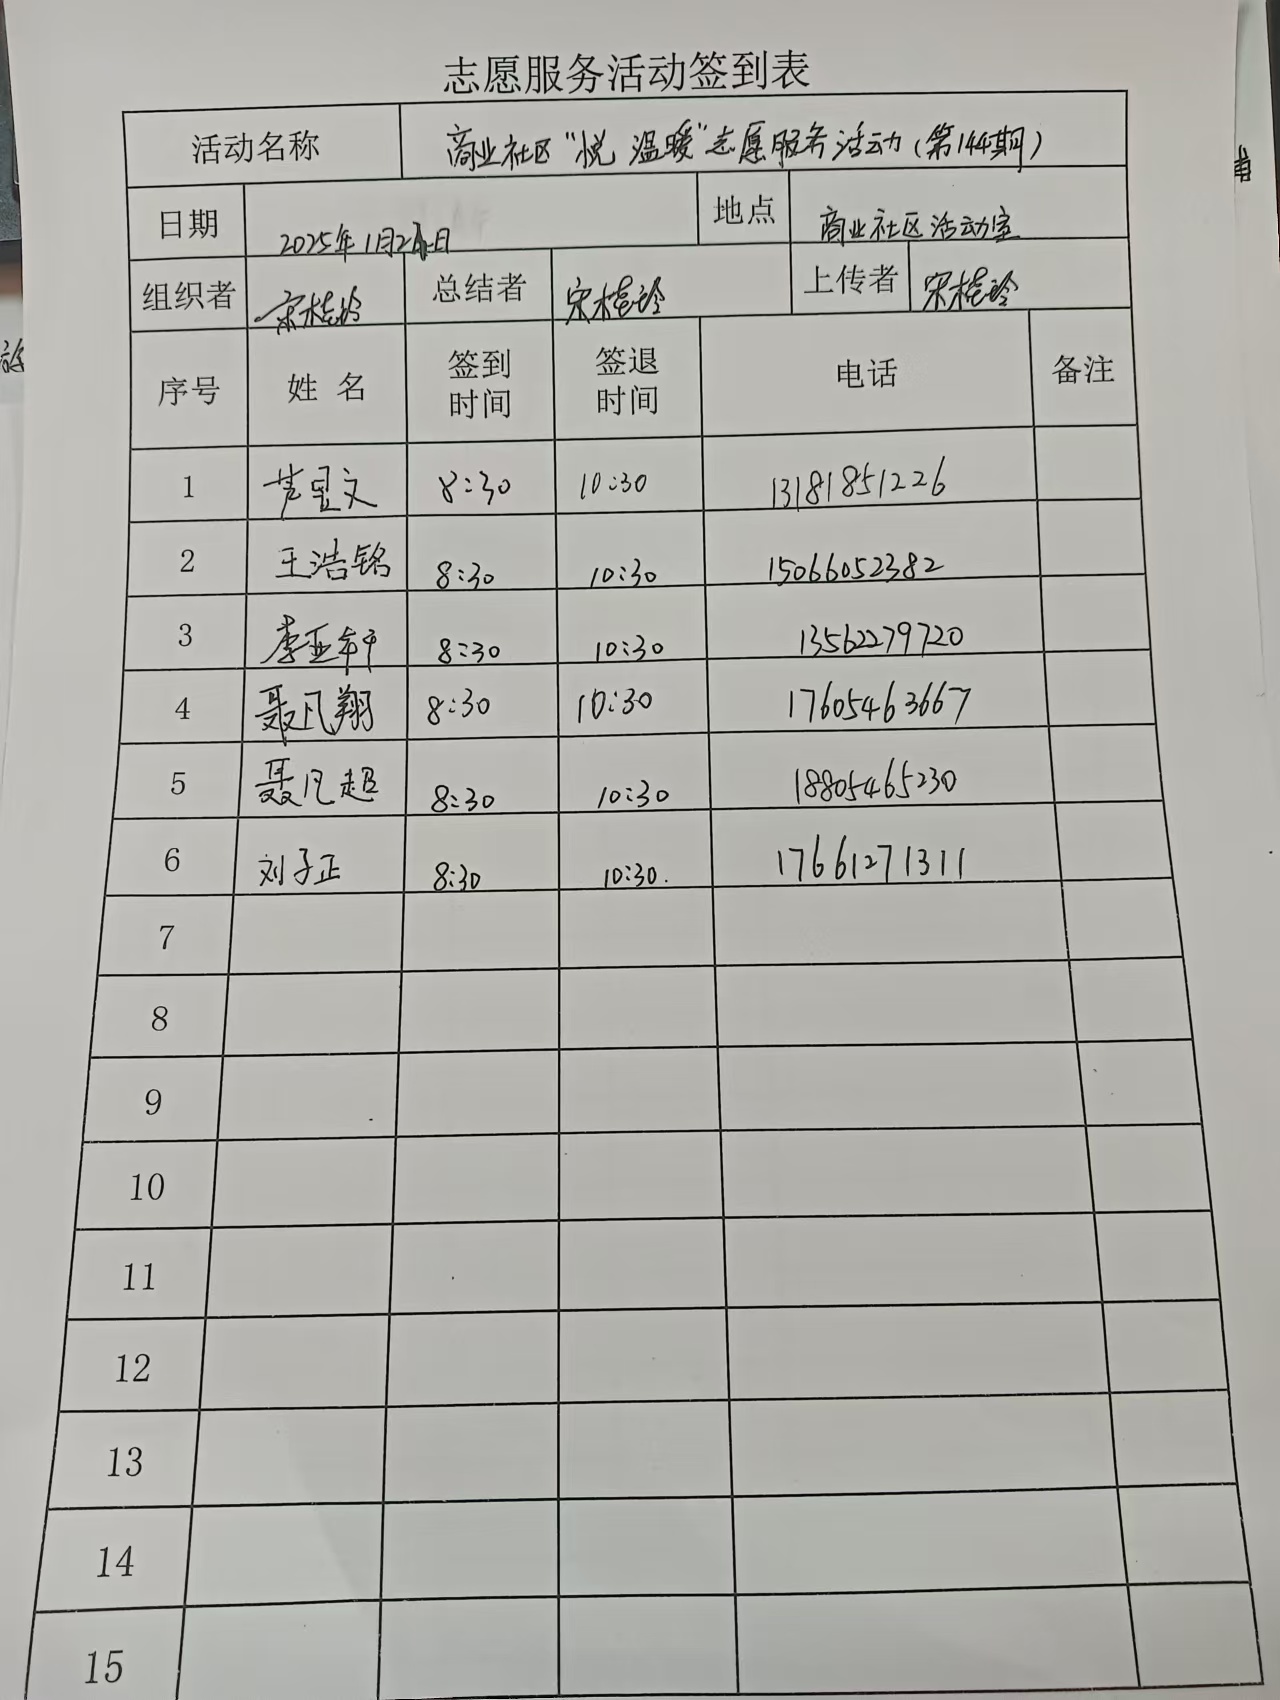 志愿服务活动签到表
活动名称 商业社区“悦 温暖”志愿服务活动(第144期)
日期 2025年1月2日 地点 商业社区活动室
组织者 宋桂玲 总结者 宋桂玲 上传者 宋桂玲
序号 姓 名 签到时间 签退时间 电话 备注
1 昱文 8:30 10:30 13181851226
2 王浩铭 8:30 10:30 15066052382
3 李亚轩 8:30 10:30 13562279720
4 聂凡翔 8:30 10:30 17605463667
5 聂凡超 8:30 10:30 18805465230
6 刘子正 8:30 10:30. 17661271311
7
8
9
10
11
12
13
14
15